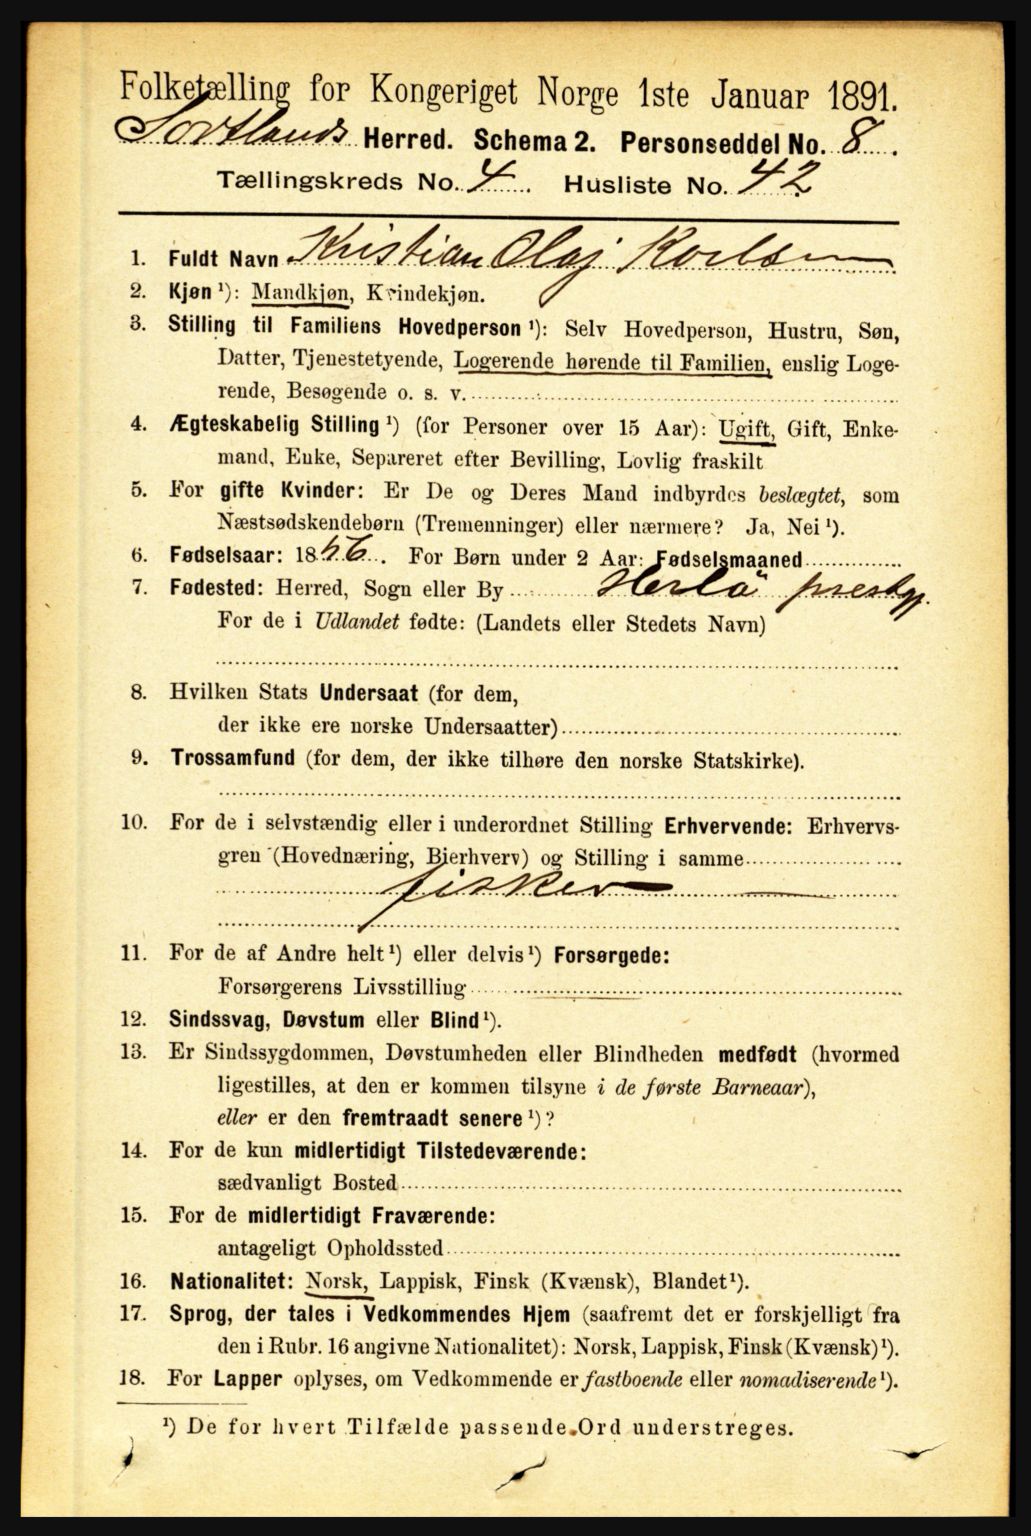 Folketælling for Kongeriget Norge 1ste Januar 1891.
Sortlands Herred. Schema 2. Personseddel No. 8.
Tællingskreds No. 4. Husliste No. 42
1. Fuldt Navn Kristian Olaj Karlsen
2. Kjøn ¹): Mandkjøn, Kvindekjøn.
3. Stilling til Familiens Hovedperson ¹): Selv Hovedperson, Hustru, Søn,
Datter, Tjenestetyende, Logerende hørende til Familien, enslig Loge-
rende, Besøgende o. s. v.
4. Ægteskabelig Stilling ¹) (for Personer over 15 Aar): Ugift, Gift, Enke-
mand, Enke, Separeret efter Bevilling, Lovlig fraskilt
5. For gifte Kvinder: Er De og Deres Mand indbyrdes beslægtet, som
Næstsødskendebørn (Tremenninger) eller nærmere? Ja, Nei ¹).
6. Fødselsaar: 1856. For Børn under 2 Aar: Fødselsmaaned
7. Fødested: Herred, Sogn eller By Herlö prestgj.
For de i Udlandet fødte: (Landets eller Stedets Navn)
8. Hvilken Stats Undersaat (for dem,
der ikke ere norske Undersaatter)
9. Trossamfund (for dem, der ikke tilhøre den norske Statskirke).
10. For de i selvstændig eller i underordnet Stilling Erhvervende: Erhvervs-
gren (Hovednæring, Bierhverv) og Stilling i samme
fisker
11. For de af Andre helt ¹) eller delvis ¹) Forsørgede:
Forsørgerens Livsstilling
12. Sindssvag, Døvstum eller Blind ¹).
13. Er Sindssygdommen, Døvstumheden eller Blindheden medfødt (hvormed
ligestilles, at den er kommen tilsyne i de første Barneaar),
eller er den fremtraadt senere ¹)?
14. For de kun midlertidigt Tilstedeværende:
sædvanligt Bosted
15. For de midlertidigt Fraværende:
antageligt Opholdssted
16. Nationalitet: Norsk, Lappisk, Finsk (Kvænsk), Blandet ¹).
17. Sprog, der tales i Vedkommendes Hjem (saafremt det er forskjelligt fra
den i Rubr. 16 angivne Nationalitet): Norsk, Lappisk, Finsk (Kvænsk) ¹).
18. For Lapper oplyses, om Vedkommende er fastboende eller nomadiserende ¹).
¹) De for hvert Tilfælde passende Ord understreges.